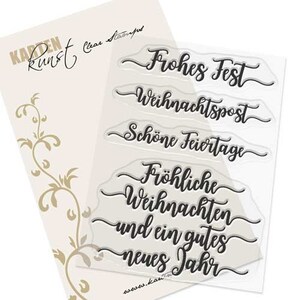 KARTEN
Kunst Clear Stamps
Frohes Fest
Weihnachtspost
Schöne Feiertage
Fröhliche
Weihnachten
und ein gutes
neues Jahr